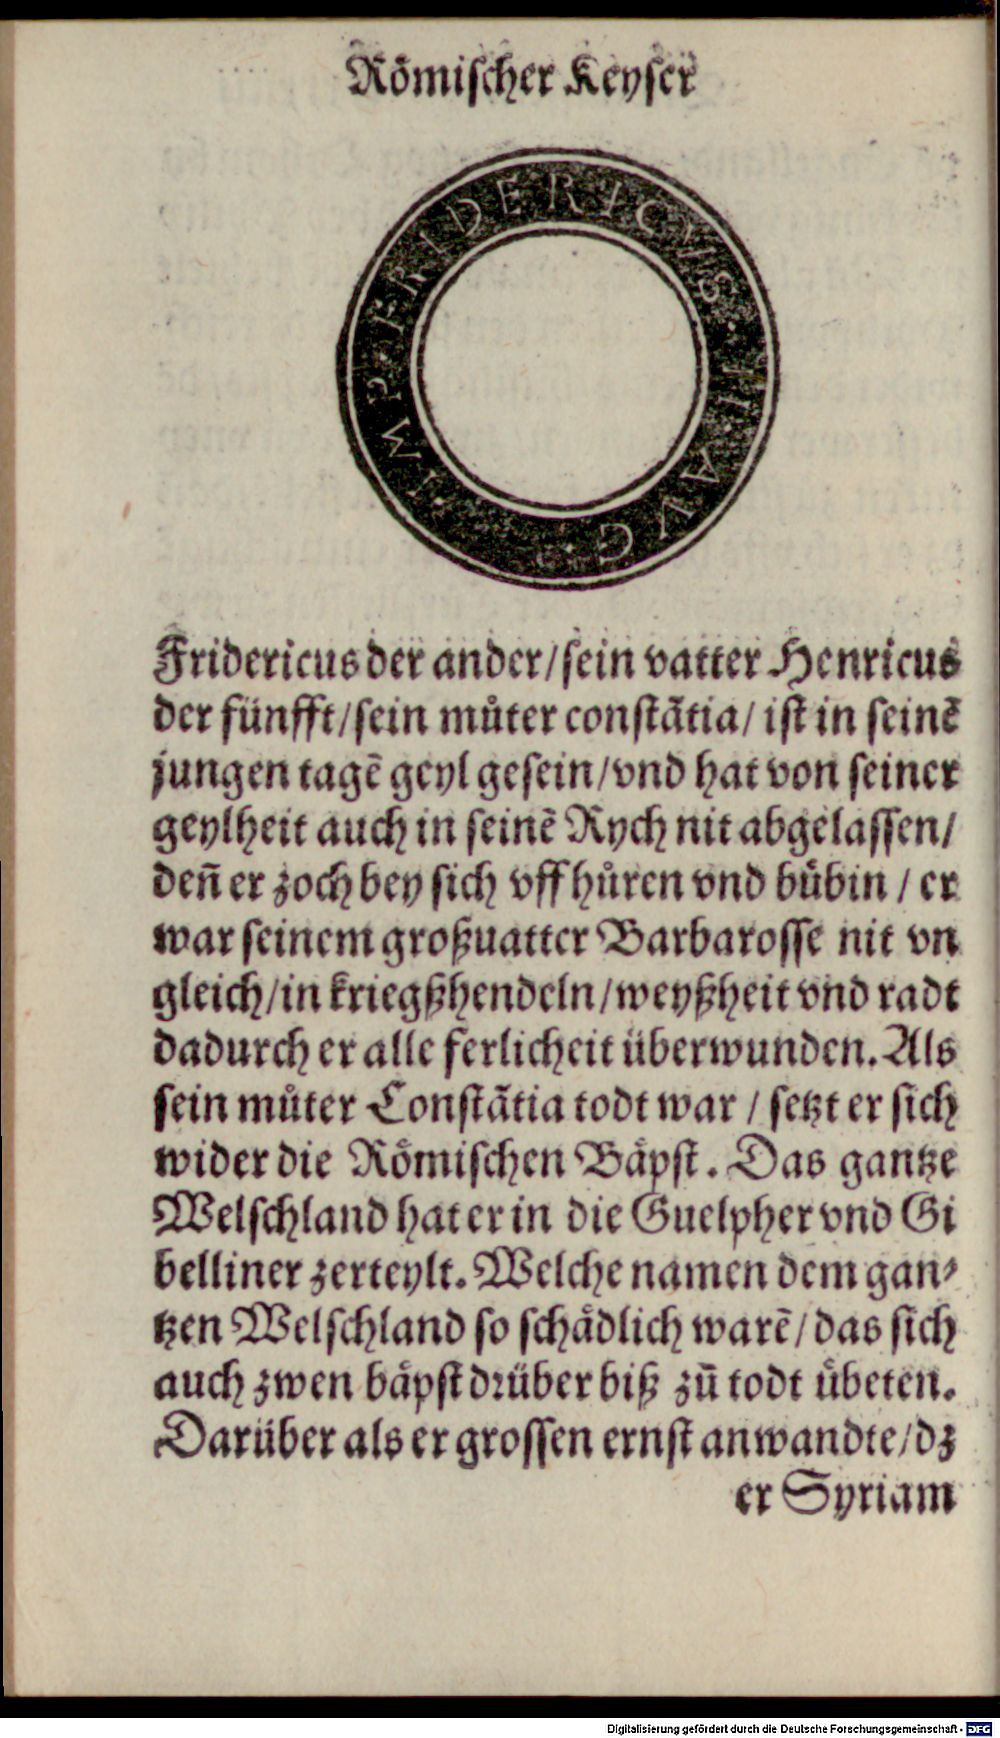 Roͤmischer Keyser
IMP · FRIDERICVS · II · AVG ·
Fridericus der ander/sein vatter Henricus
der fünfft/sein můter constātia/ ist in seinē
jungen tagē geyl gesein/vnd hat von seiner
geylheit auch in seinē Rych nit abgelassen/
deñ er zoch bey sich vff hůren vnd buͤbin / er
war seinem großuatter Barbarosse nit vn
gleich/in kriegßhendeln/weyßheit vnd radt
dadurch er alle ferlicheit überwunden. Als
sein můter Constātia todt war / setzt er sich
wider die Roͤmischen Baͤpst. Das gantze
Welschland hat er in die Guelpher vnd Gi
belliner zerteylt. Welche namen dem gan⸗
tzen Welschland so schaͤdlich warē/das sich
auch zwen baͤpst drüber biß zū todt uͤbeten.
Darüber als er grossen ernst anwandte/dz
er Syriam
Digitalisierung gefördert durch die Deutsche Forschungsgemeinschaft - DFG